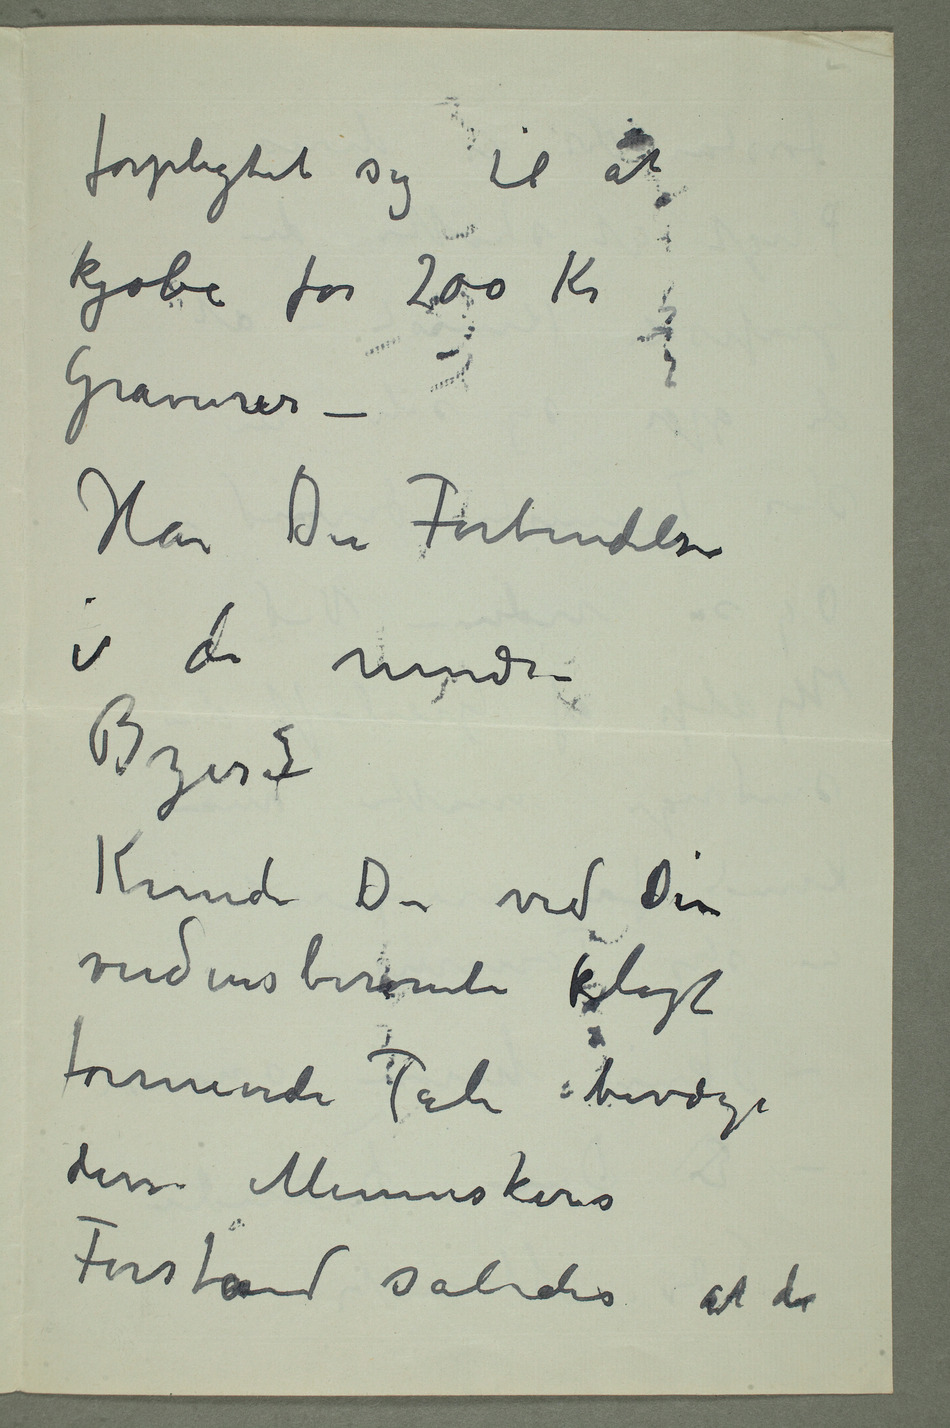 forpligtet sig til at
kjøbe for 200 Kr
Gravurer –
Har Du Forbindelser
i de mindre
Byer?
Kunde Du ved Din
verdensberømte klogt
formende Tale bevæge
disse Menneskers
Forstand således at de